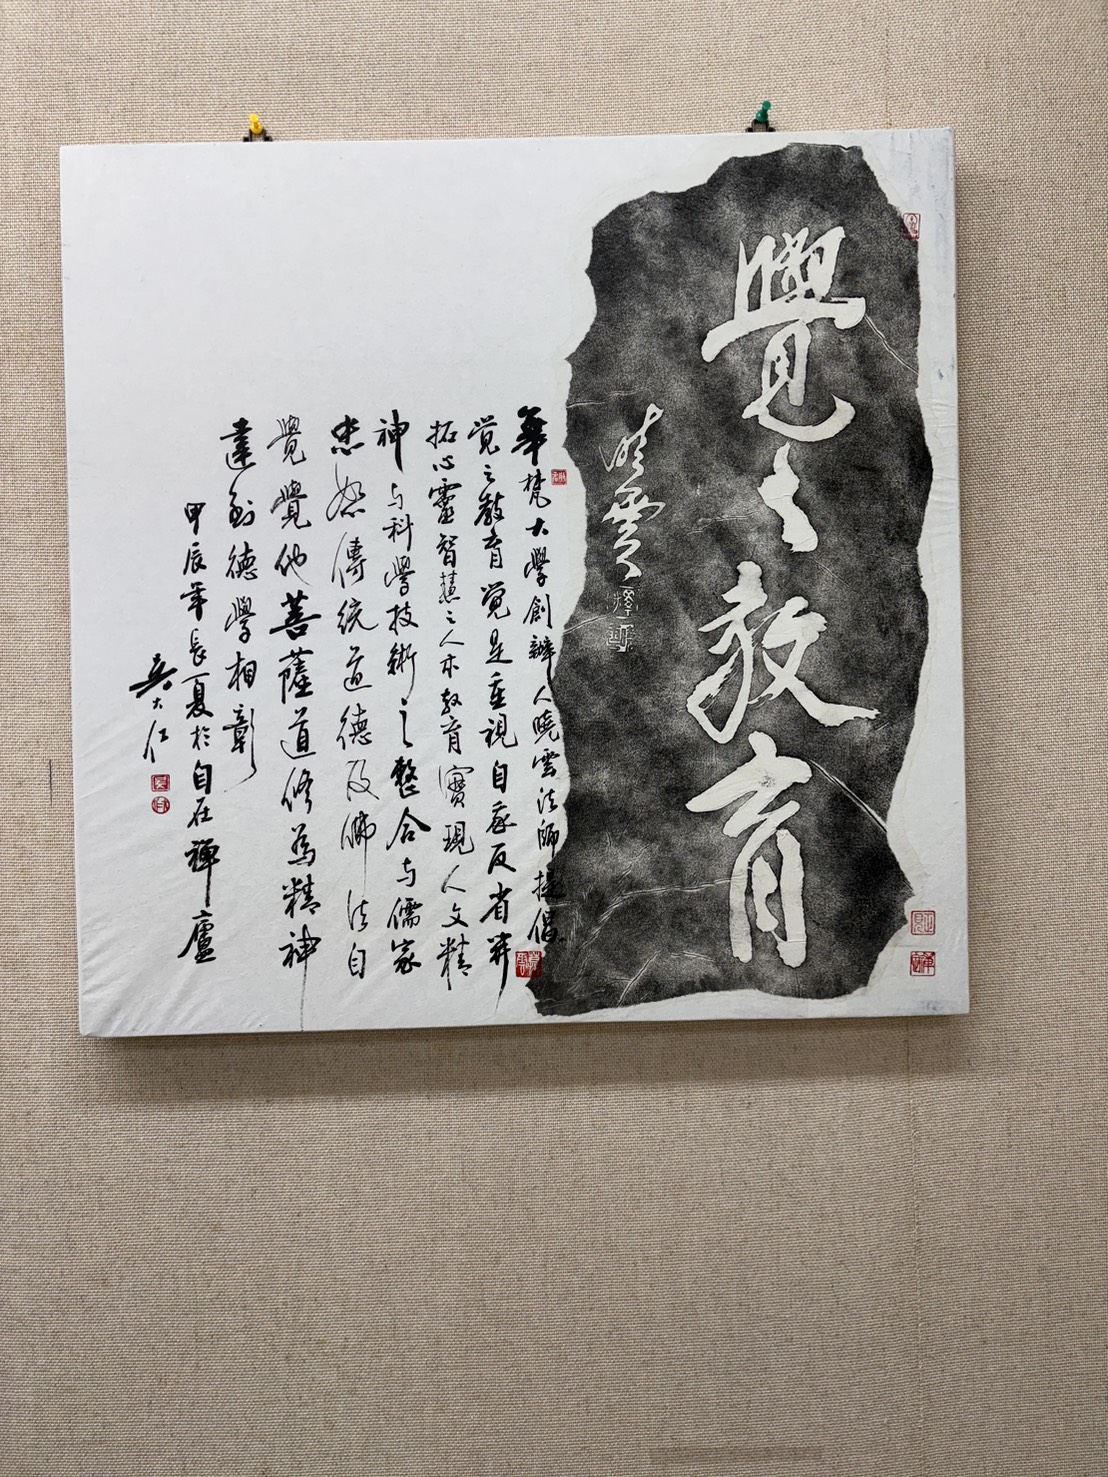 覺之教育
曉雲
華梵大學創辦人曉雲法師提倡
覚之教育覚是重視自家反省并
拓心靈智慧之人本教育實現人文精
神与科學技術之整合与儒家
忠恕傳統道德及佛法自
覺覺他菩薩道修為精神
達到德學相彰
甲辰年長夏於自在禪廬
吳大仁